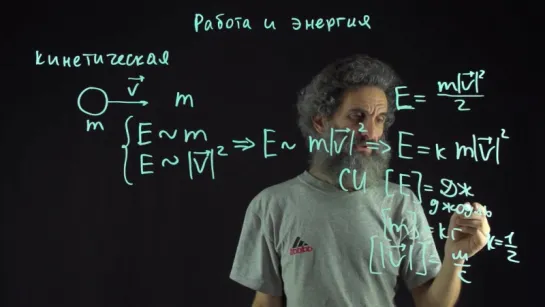 Работа и энергия
кинетическая
v⃗
m
m
E ~ m
E ~ |v⃗|²
⇒ E ~ m|v⃗|² ⇒ E = k m|v⃗|²
E = m|v⃗|²/2
СИ [E] = Дж
джоуль
[m] = кг
[|v⃗|] = м/с
k = 1/2